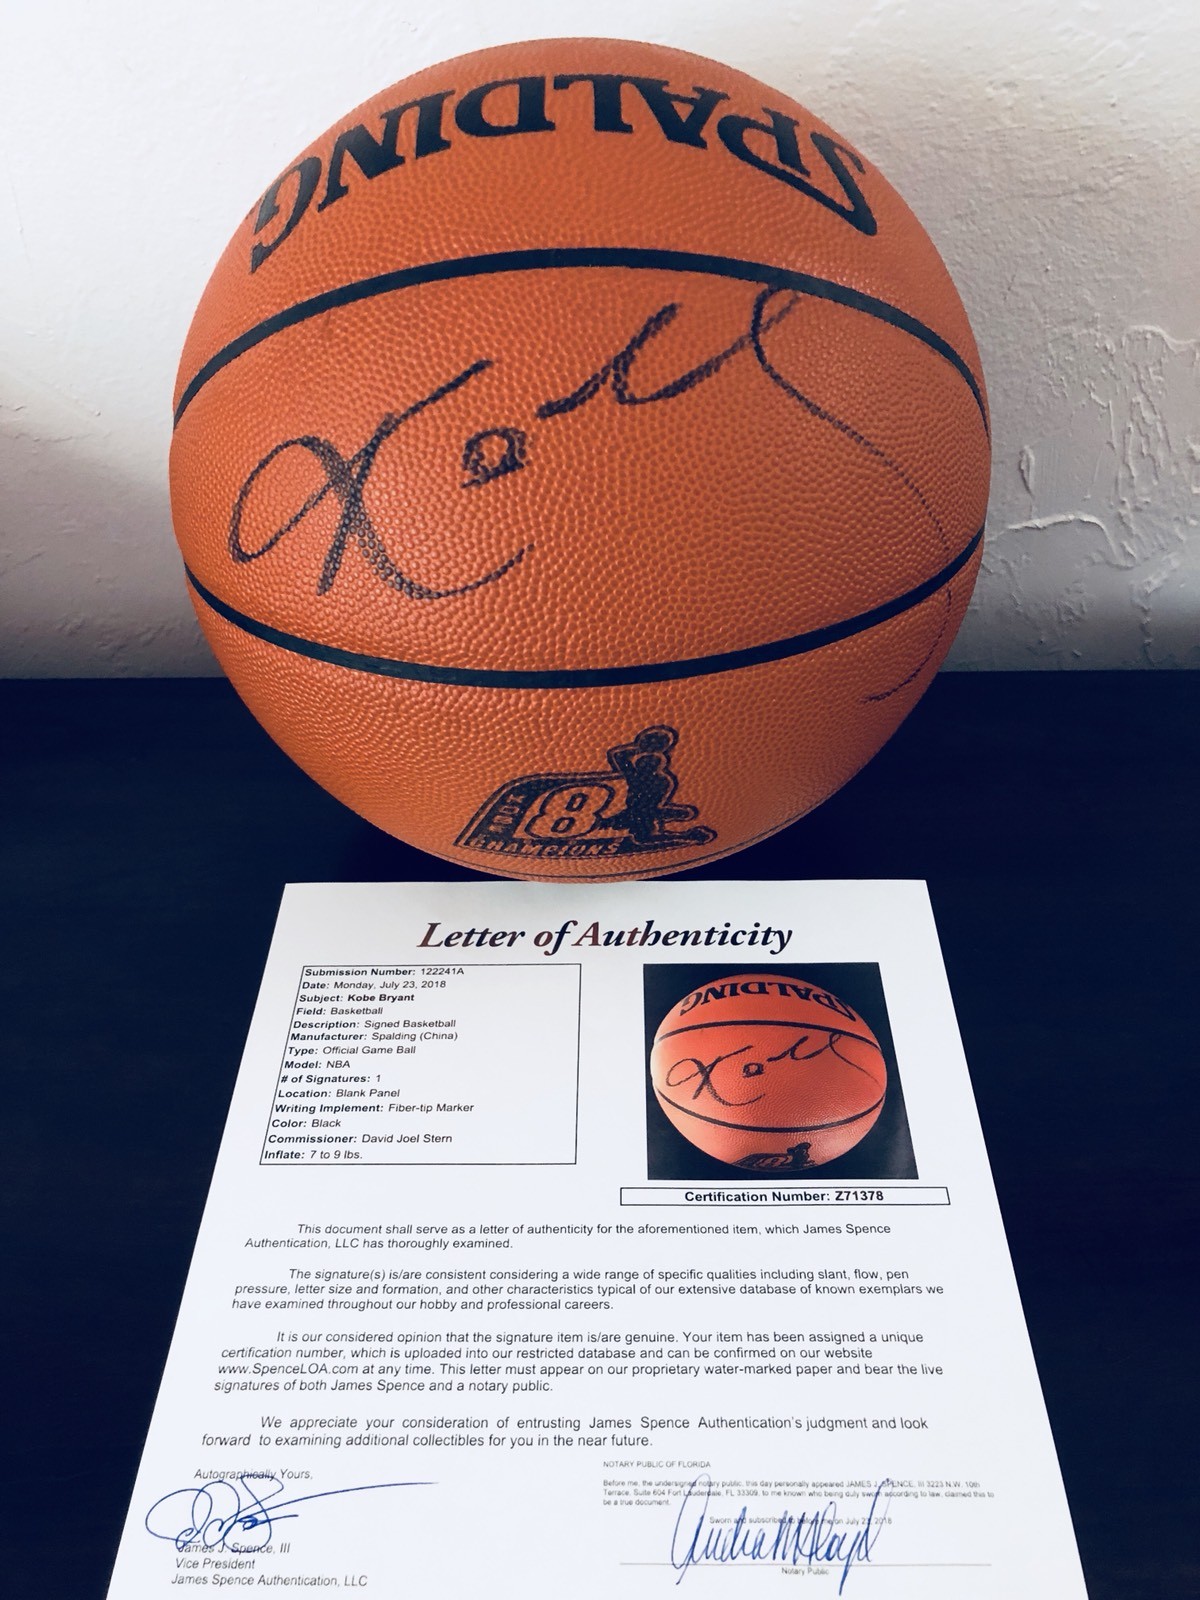 SPALDING
Kobe
KOBE
8
CHAMPIONS
Letter of Authenticity
Submission Number: 122241A
Date: Monday, July 23, 2018
Subject: Kobe Bryant
Field: Basketball
Description: Signed Basketball
Manufacturer: Spalding (China)
Type: Official Game Ball
Model: NBA
# of Signatures: 1
Location: Blank Panel
Writing Implement: Fiber-tip Marker
Color: Black
Commissioner: David Joel Stern
Inflate: 7 to 9 lbs.
SPALDING
Kobe
8
Certification Number: Z71378
This document shall serve as a letter of authenticity for the aforementioned item, which James Spence
Authentication, LLC has thoroughly examined.
The signature(s) is/are consistent considering a wide range of specific qualities including slant, flow, pen
pressure, letter size and formation, and other characteristics typical of our extensive database of known exemplars we
have examined throughout our hobby and professional careers.
It is our considered opinion that the signature item is/are genuine. Your item has been assigned a unique
certification number, which is uploaded into our restricted database and can be confirmed on our website
www.SpenceLOA.com at any time. This letter must appear on our proprietary water-marked paper and bear the live
signatures of both James Spence and a notary public.
We appreciate your consideration of entrusting James Spence Authentication's judgment and look
forward to examining additional collectibles for you in the near future.
Autographically Yours,
James J. Spence, III
Vice President
James Spence Authentication, LLC
NOTARY PUBLIC OF FLORIDA
Before me, the undersigned notary public, this day personally appeared JAMES J. SPENCE, III 3223 N.W. 10th
Terrace, Suite 604 Fort Lauderdale, FL 33309, to me known who being duly sworn according to law, claimed this to
be a true document.
Sworn and subscribed to before me on July 23, 2018
Notary Public